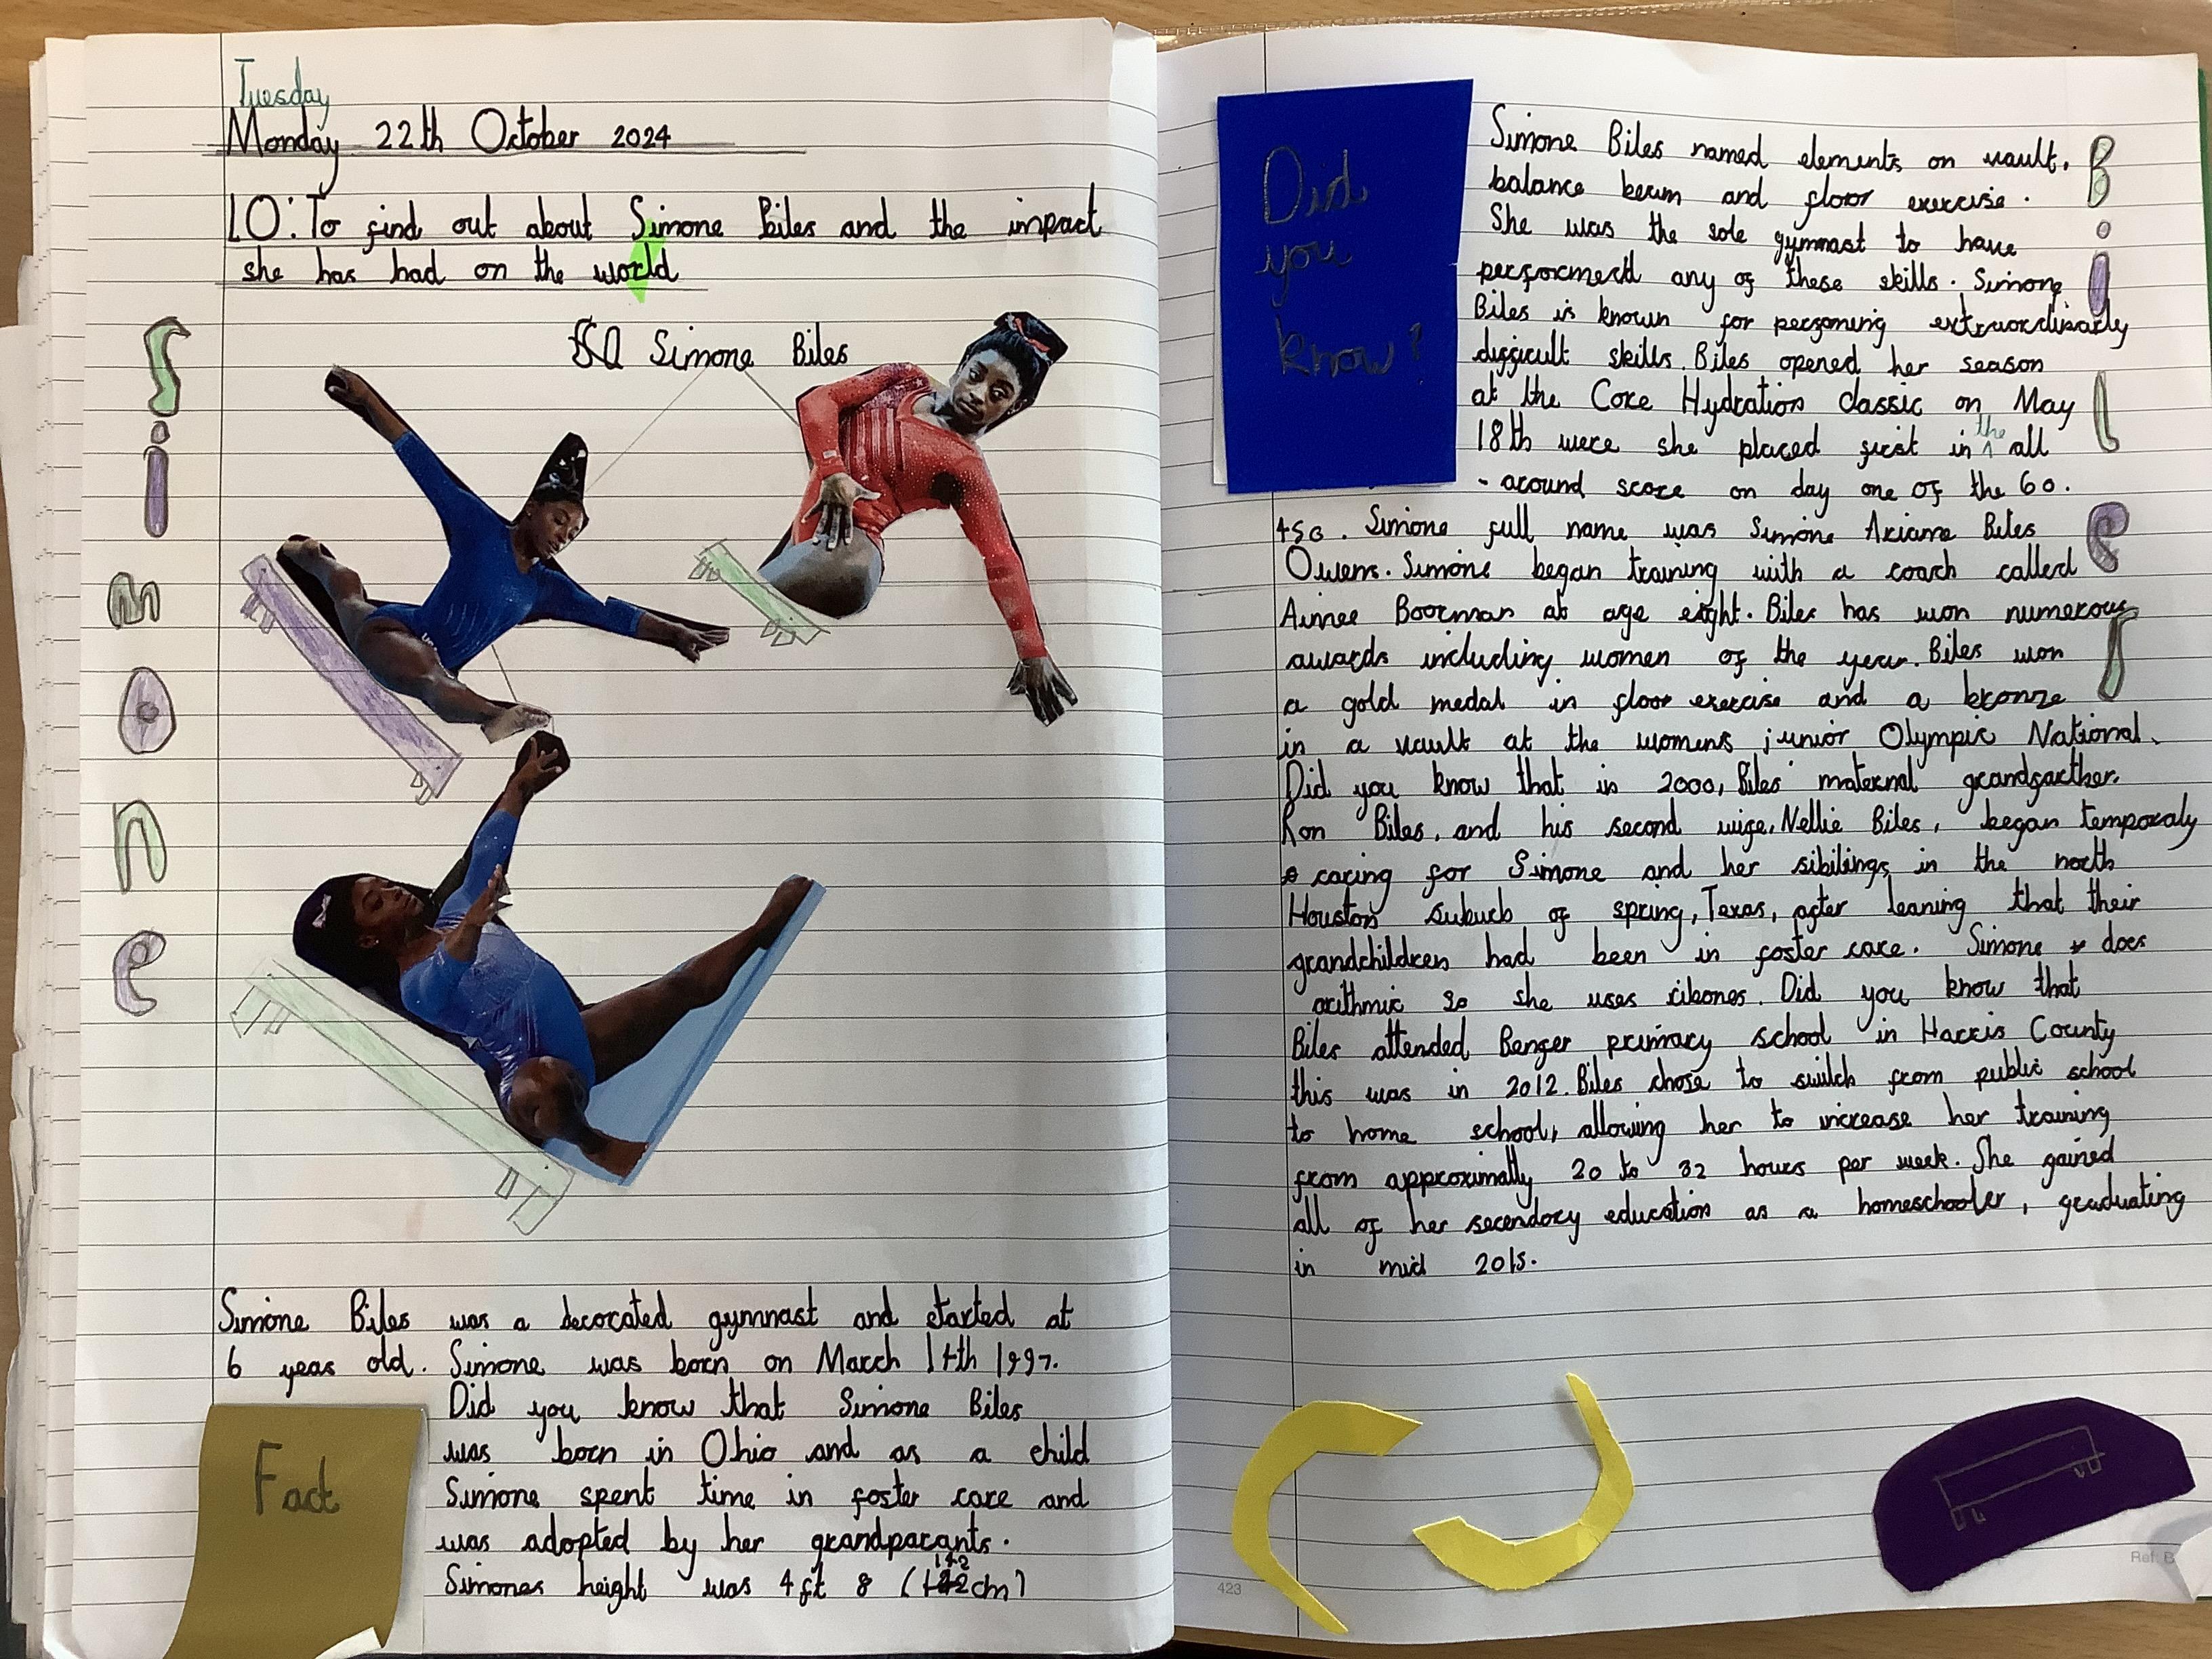 Tuesday
Monday 22th October 2024
LO: To find out about Simone Biles and the impact
she has had on the world
Simone Biles
Simone
Simone Biles was a decorated gymnast and started at
6 years old. Simone was born on March 14th 1997.
Did you know that Simone Biles
was born in Ohio and as a child
Simone spent time in foster care and
was adopted by her grandparants.
142
Simones height was 4ft 8 (142cm)
Fact
Did
you
know?
Simone Biles named elements on vault,
balance beam and floor exercise.
She was the sole gymnast to have
performend any of these skills. Simone
Biles is known for perfoming extraordinarly
difficult skills. Biles opened her season
at the Core Hydration classic on May
18th were she placed first in the all
-around score on day one of the 60.
450. Simone full name was Simone Ariane Biles
Owens. Simone began training with a coach called
Aimee Boorman at age eight. Biles has won numerous
awards including women of the year. Biles won
a gold medal in floor exercise and a bronze
in a vault at the womens junior Olympic National.
Did you know that in 2000, Biles' maternal grandfarther.
Ron Biles, and his second wife, Nellie Biles, began temporaly
caring for Simone and her sibilings in the north
Houston suburb of spring, Texas, after leaning that their
grandchildren had been in foster care. Simone does
arithmic so she uses ribones. Did you know that
Biles attended Benfer primary school in Harris County
this was in 2012. Biles chose to switch from public school
to home school, allowing her to increase her training
from approximally 20 to 32 hours per week. She gained
all of her secendory education as a homeschooler, graduating
in mid 2015.
Biles
423
Ref: B